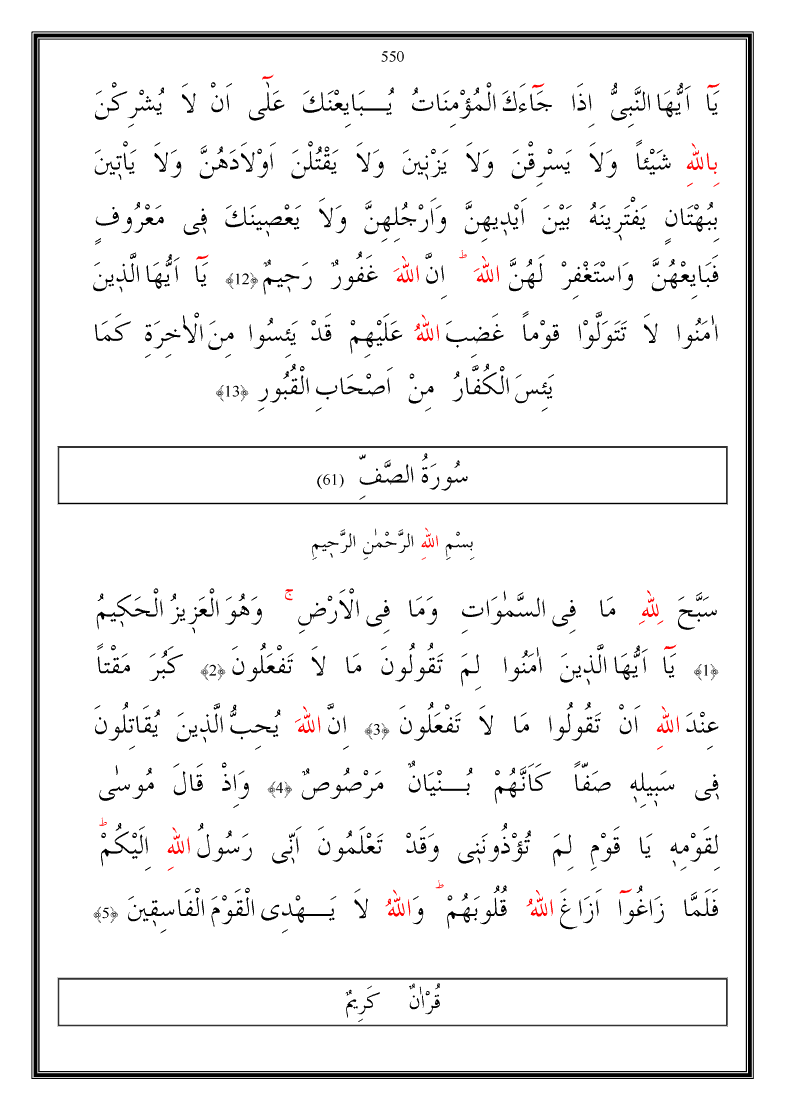 550
يَٓا اَيُّهَا النَّبِىُّ اِذَا جَٓاءَكَ الْمُؤْمِنَاتُ يُـــبَايِعْنَكَ عَلٰٓى اَنْ لاَ يُشْرِكْنَ
بِاللّٰهِ شَيْئاً وَلاَ يَسْرِقْنَ وَلاَ يَزْنٖينَ وَلاَ يَقْتُلْنَ اَوْلاَدَهُنَّ وَلاَ يَاْتٖينَ
بِبُهْتَانٍ يَفْتَرٖينَهُ بَيْنَ اَيْدٖيهِنَّ وَاَرْجُلِهِنَّ وَلاَ يَعْصٖينَكَ فٖى مَعْرُوفٍ
فَبَايِعْهُنَّ وَاسْتَغْفِرْ لَهُنَّ اللّٰهَ ؕ اِنَّ اللّٰهَ غَفُورٌ رَحٖيمٌ ﴿12﴾ يَٓا اَيُّهَا الَّذٖينَ
اٰمَنُوا لاَ تَتَوَلَّوْا قَوْماً غَضِبَ اللّٰهُ عَلَيْهِمْ قَدْ يَئِسُوا مِنَ الْاٰخِرَةِ كَمَا
يَئِسَ الْكُفَّارُ مِنْ اَصْحَابِ الْقُبُورِ ﴿13﴾
سُورَةُ الصَّفِّ (61)
بِسْمِ اللّٰهِ الرَّحْمٰنِ الرَّحٖيمِ
سَبَّحَ لِلّٰهِ مَا فِى السَّمٰوَاتِ وَمَا فِى الْاَرْضِ ۚ وَهُوَ الْعَزٖيزُ الْحَكٖيمُ
﴿1﴾ يَٓا اَيُّهَا الَّذٖينَ اٰمَنُوا لِمَ تَقُولُونَ مَا لاَ تَفْعَلُونَ ﴿2﴾ كَبُرَ مَقْتاً
عِنْدَ اللّٰهِ اَنْ تَقُولُوا مَا لاَ تَفْعَلُونَ ﴿3﴾ اِنَّ اللّٰهَ يُحِبُّ الَّذٖينَ يُقَاتِلُونَ
فٖى سَبٖيلِهٖ صَفّاً كَاَنَّهُمْ بُـــنْيَانٌ مَرْصُوصٌ ﴿4﴾ وَاِذْ قَالَ مُوسٰى
لِقَوْمِهٖ يَا قَوْمِ لِمَ تُؤْذُونَنٖى وَقَدْ تَعْلَمُونَ اَنّٖى رَسُولُ اللّٰهِ اِلَيْكُمْ ؕ
فَلَمَّا زَاغُٓوا اَزَاغَ اللّٰهُ قُلُوبَهُمْ ؕ وَاللّٰهُ لاَ يَـــهْدِى الْقَوْمَ الْفَاسِقٖينَ ﴿5﴾
قُرْاٰنٌ كَرٖيمٌ